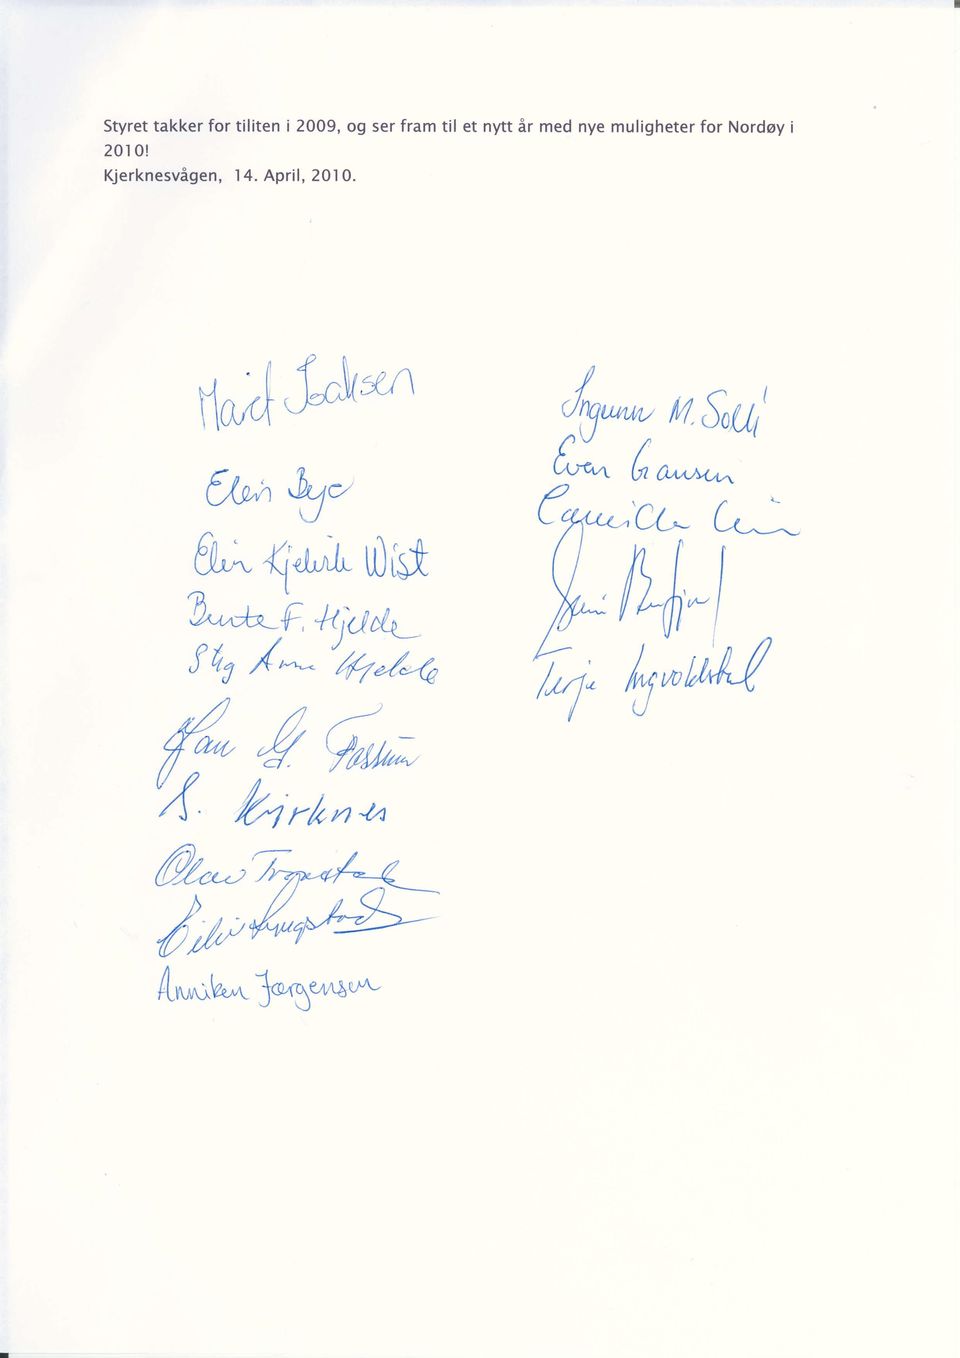 Styret takker for tiliten i 2009, og ser fram til et nytt år med nye muligheter for Nordøy i
2010!
Kjerknesvågen, 14. April, 2010.
Marit Isaksen
Elein Bye
Elin Kjelvik Wist
Bente F. Hjelde
Stig Arne Hjelde
Jan G. Fossum
S. Kjerknes
Olav
Eiliv
Anniken Jørgensen
Ingunn M. Solli
Even
Camilla
Terje Ingvoldstad